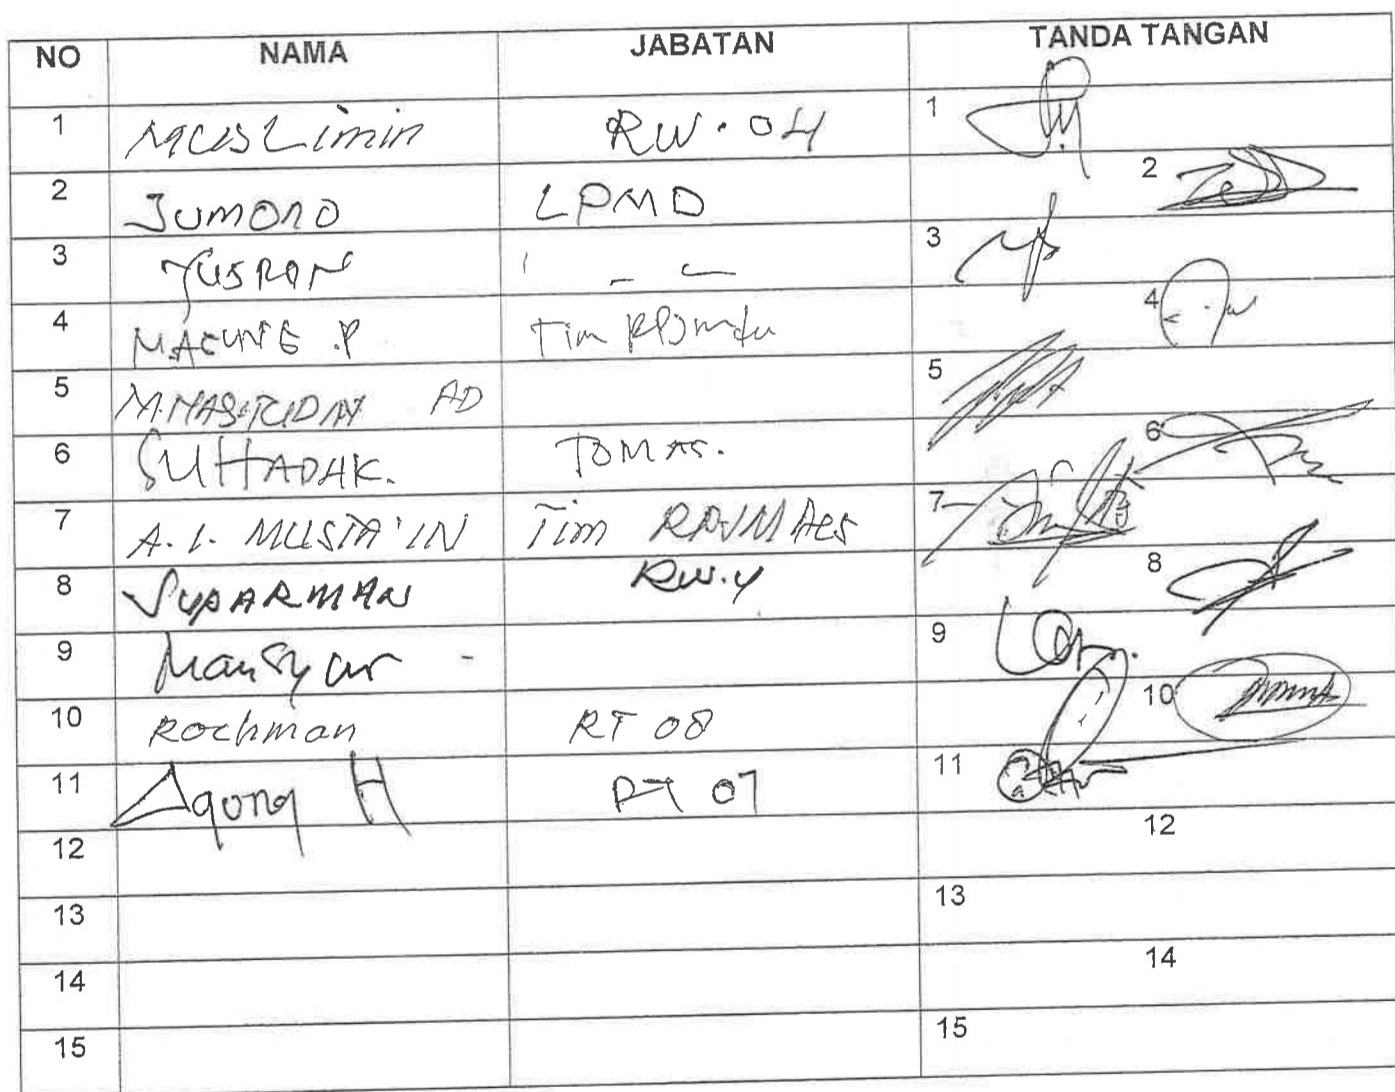 NO NAMA JABATAN TANDA TANGAN
1 MUSLimin RW. 04 1
2 JUMONO LPMD 2
3 YUSRON 3
4 4
5 AD 5
6 SUHADAK. TOMAS. 6
7 A. I. MUSTA'IN Tim 7
8 SUPARMAN RW.4 8
9 Mansyur - 9
10 Rochman RT 08 10
11 Agung H RT 07 11
12 12
13 13
14 14
15 15